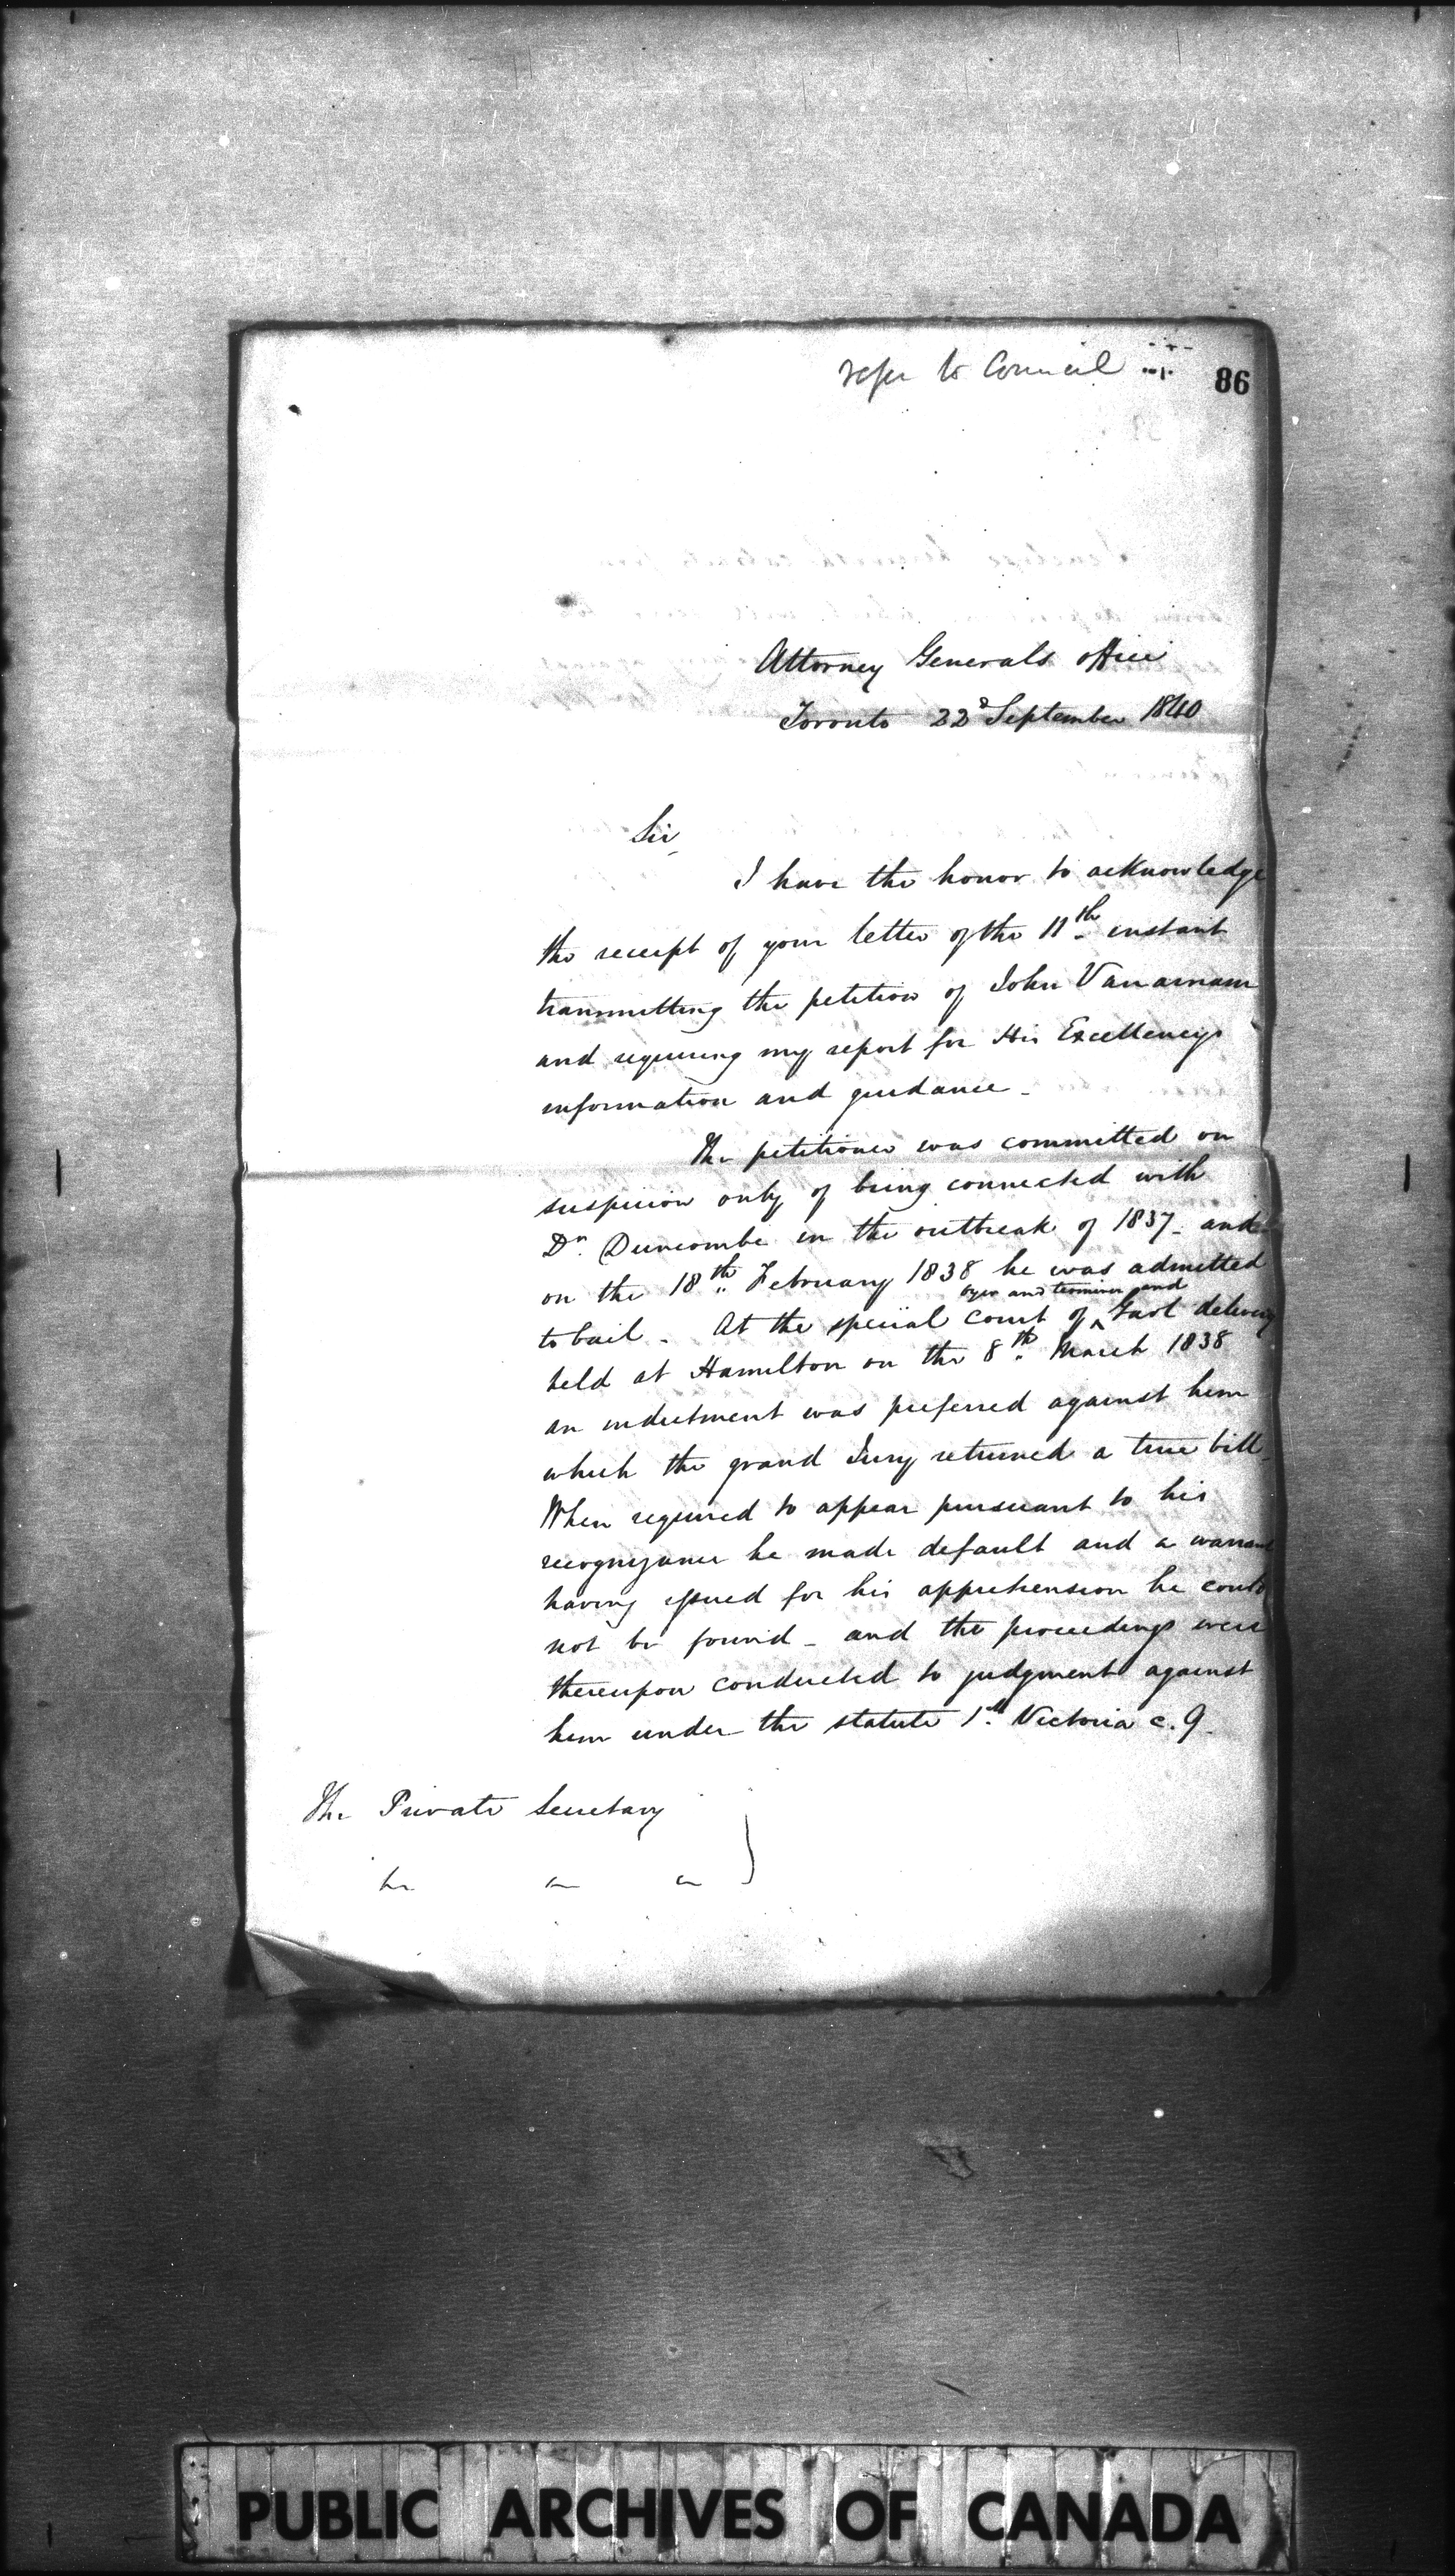 refer to Council
86
Attorney Generals office
Toronto 22d September 1840
Sir,
I have the honor to acknowledge
the receipt of your letter of the 11th instant
transmitting the petition of John Vanarnam
and requiring my report for His Excellencys
information and guidance -
The petitioner was committed on
suspicion only of being connected with
Dr. Duncombe in the outbreak of 1837 - and
on the 18th February 1838 he was admitted
oyer and terminer and
to bail - At the special court of ^ Gaol delivery
held at Hamilton on the 8th March 1838
an indictment was preferred against him
which the grand Jury returned a true bill.
When required to appear pursuant to his
recognizance he made default and a warrant
having issued for his apprehension he could
not be found - and the proceedings were
thereupon conducted to judgment against
him under the statute 1st Victoria c. 9.
The Private Secretary
PUBLIC ARCHIVES OF CANADA